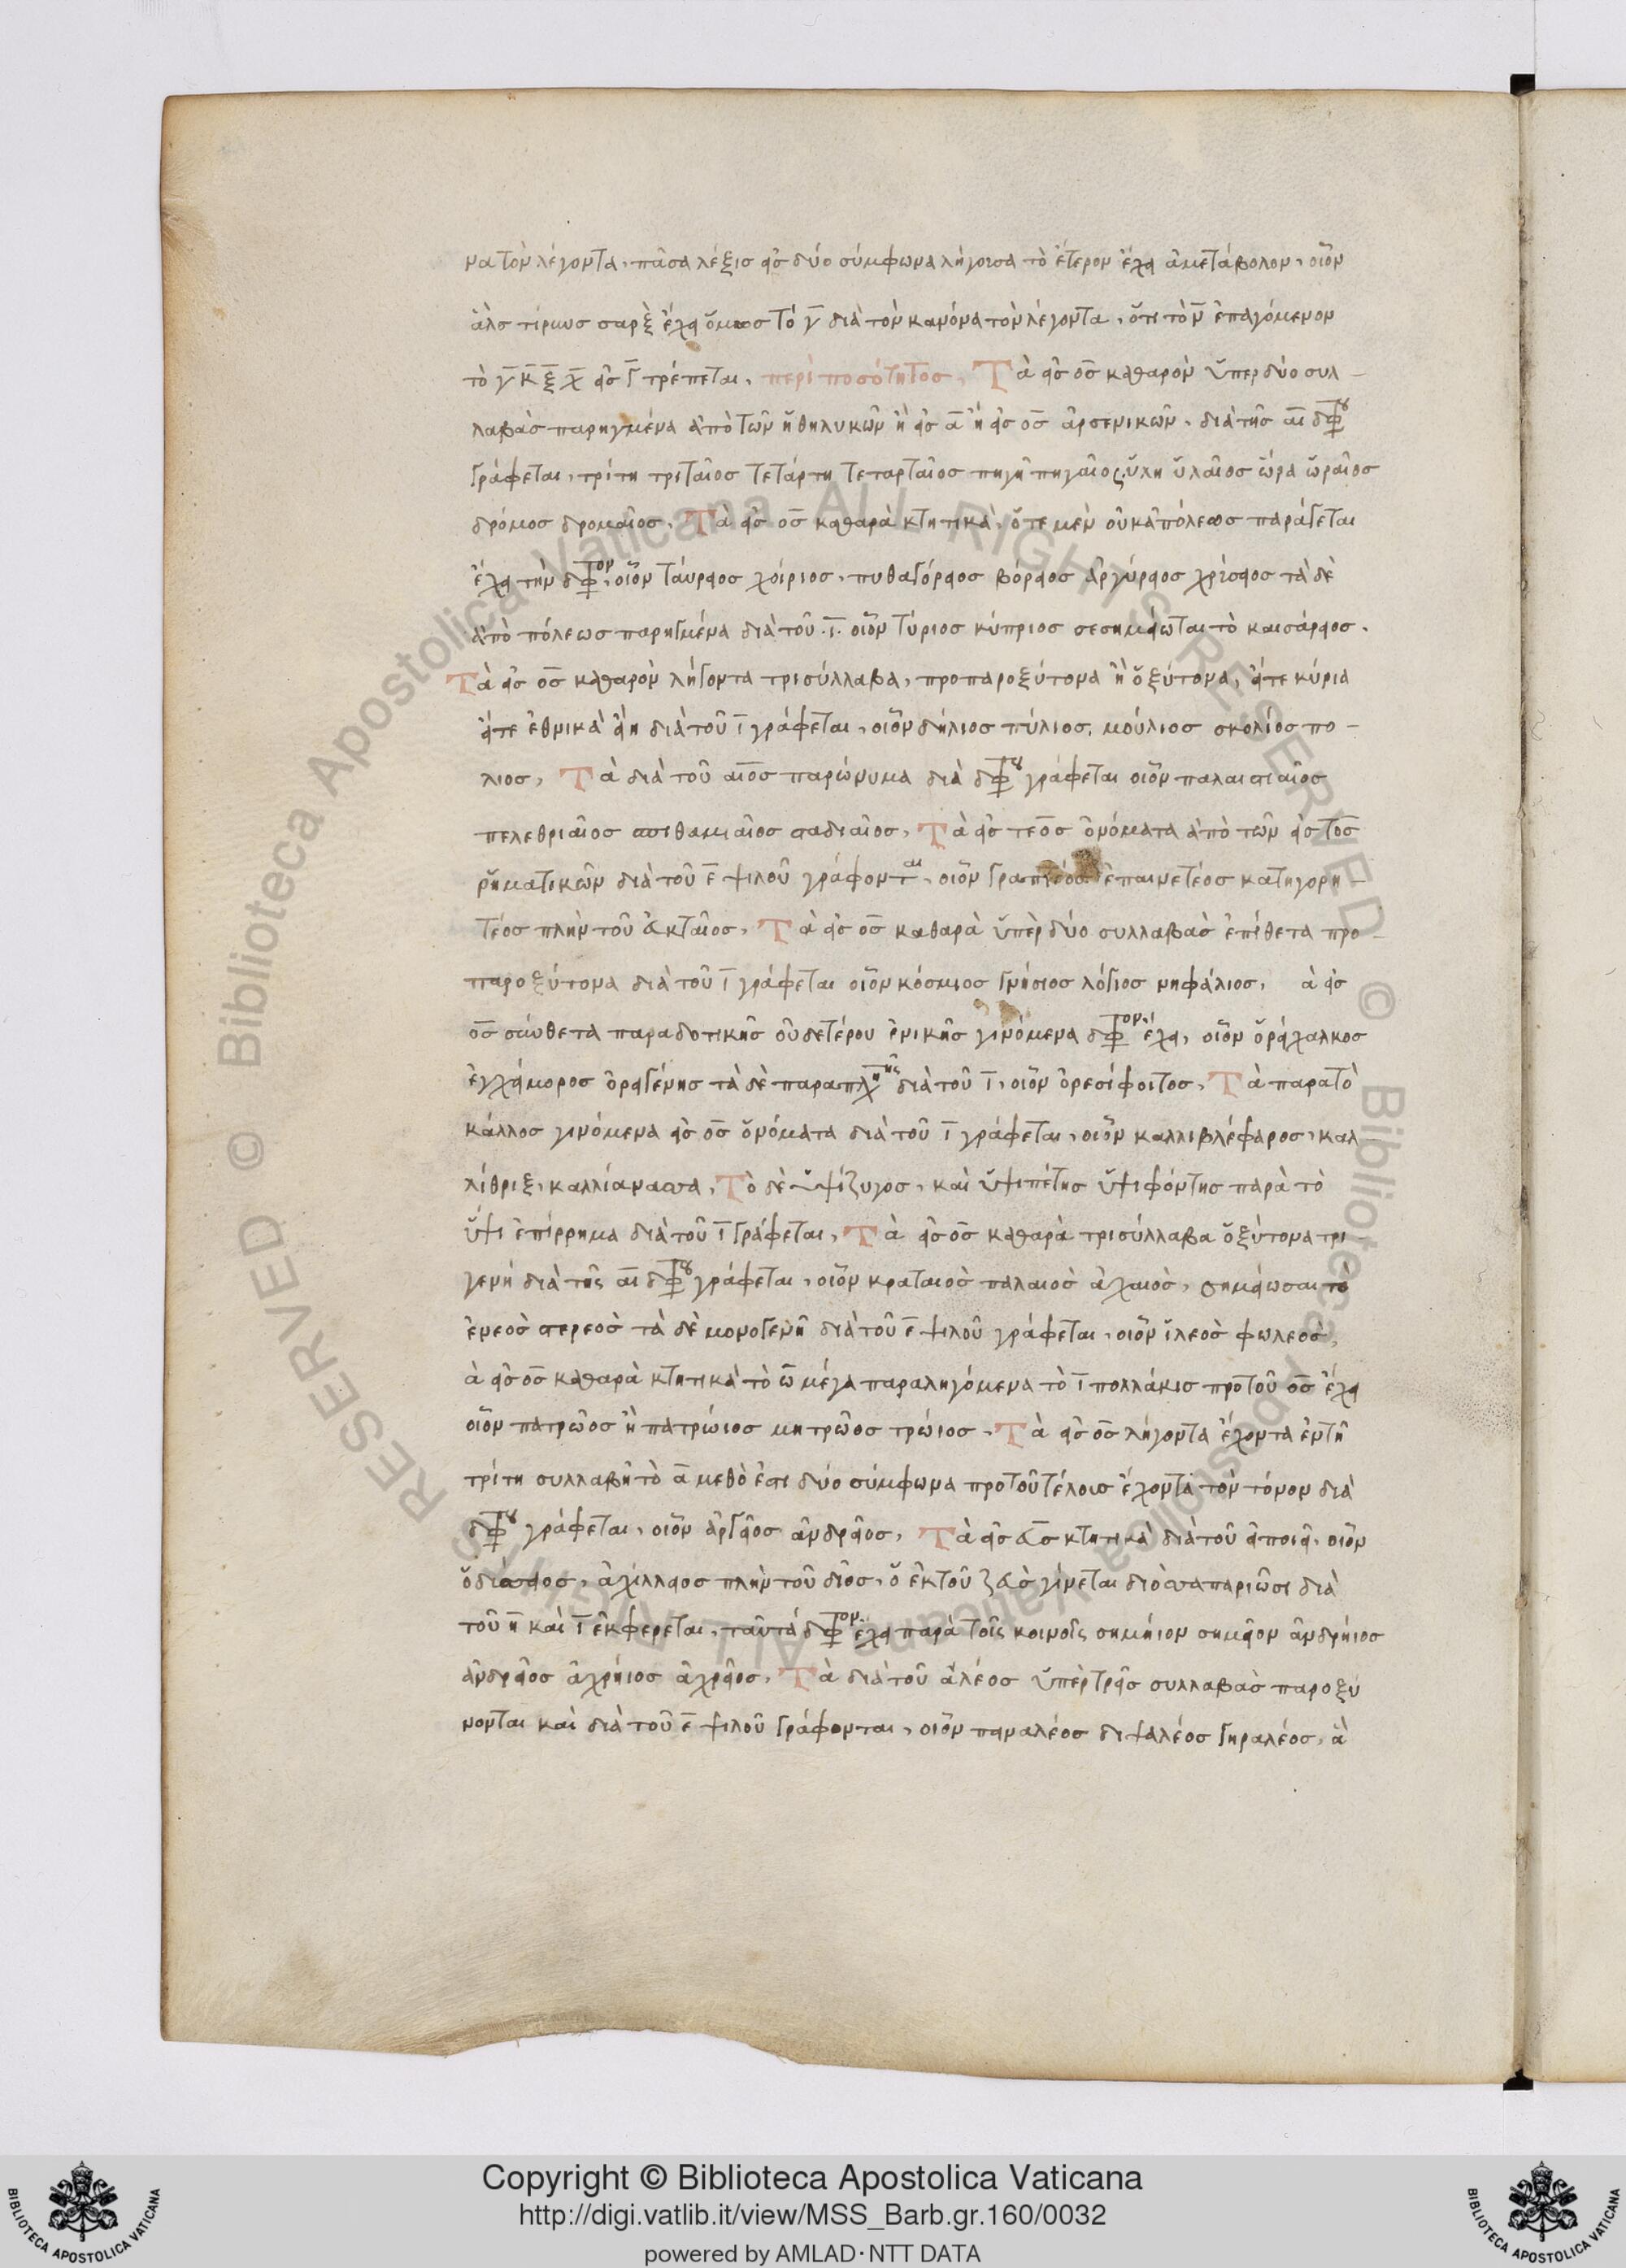 να τὸν λέγοντα, πᾶσα λέξις εἰς δύο σύμφωνα λήγουσα τὸ ἕτερον ἔχει ἀμετάβολον, οἷον
ἅλς τίρυνς σαρξ ἔχει ὅμως τὸ γ διὰ τὸν κανόνα τὸν λέγοντα, ὅτι τὸ ν ἐπαγόμενον
τὸ γ κ ξ χ εἰς γ τρέπεται, περὶ ποσότητος, Τὰ εἰς ος καθαρὸν ὑπερ δύο συλ-
λαβὰς παρηγμένα ἀπὸ τῶν ἢ θηλυκῶν ἢ εἰς α ἢ εἰς ος ἀρσενικῶν, διὰ τῆς αι διφ
γράφεται, τρίτη τριταῖος τετάρτη τεταρταῖος πηγὴ πηγαῖος ὕλη ὑλαῖος ὥρα ὡραῖος
δρόμος δρομαῖος, Τὰ εἰς ος καθαρὰ κτητικὰ, ὅτε μὲν οὐκ ἀπόλεως παράγεται
ἔχει τὴν διφ, οἷον ταύρειος χοίριος, πυθαγόρειος βόρειος ἀργύρειος χρύσειος τὰ δὲ
ἀπὸ πόλεως παρηγμένα διὰ τοῦ ι οἷον τύριος κύπριος σεσημείωται τὸ καισάρειος.
Τὰ εἰς ος καθαρὸν λήγοντα τρισύλλαβα, προπαροξύτονα ἢ ὀξύτονα, εἴτε κύρια
εἴτε ἐθνικὰ εἴη διὰ τοῦ ι γράφεται, οἷον δήλιος πύλιος, μούλιος σκολιός πο-
λιος, Τὰ διὰ τοῦ αιος παρώνυμα διὰ διφ γράφεται οἷον παλαιστιαῖος
πελεθριαῖος σπιθαμιαῖος σταδιαῖος, Τὰ εἰς τεος ὀνόματα ἀπὸ τῶν εἰς τος
ρηματικῶν διὰ τοῦ ε ψιλοῦ γράφονται, οἷον γραπτέος ἐπαινετέος κατηγορη-
τέος πλὴν τοῦ ἀκταῖος, Τὰ εἰς ος καθαρὰ ὑπὲρ δύο συλλαβὰς ἐπίθετα προ-
παροξύτονα διὰ τοῦ ι γράφεται οἷον κόσμιος γνήσιος λόγιος νηφάλιος, ὰ εἰς
ος σύνθετα παρα δοτικῆς οὐδετέρου ἑνικῆς γινόμενα διφ ἔχει, οἷον ὀρείχαλκος
ἐγχείμορος ὀρειγένης τὰ δὲ παρα πληθ διὰ τοῦ ι, οἷον ὀρεσίφοιτος, Τὰ παρα τὸ
κάλλος γινόμενα εἰς ος ὀνόματα διὰ τοῦ ι γράφεται, οἷον καλλιβλέφαρος, καλ-
λίθριξ, καλλιάνασσα, Τὸ δὲ ὑψίζυγος, καὶ ὑψιπέτης ὑψιφόντης παρὰ τὸ
ὕψι ἐπίρρημα διὰ τοῦ ι γράφεται, Τὰ εἰς ος καθαρὰ τρισύλλαβα ὀξύτονα τρι
γενῆ διὰ τῆς αι διφ γράφεται, οἷον κραταιὸς παλαιὸς ἀχαιὸς, σημείωσαι τὸ
ἐνεὸς στερεὸς τὰ δὲ μονογενῆ διὰ τοῦ ε ψιλοῦ γράφεται, οἷον ἰλεὸς φωλεὸς,
ὰ εἰς ος καθαρὰ κτητικὰ τὸ ω μέγα παραληγόμενα τὸ ι πολλάκις προ τοῦ ος ἔχει
οἷον πατρῶος ἢ πατρώιος μητρῶος τρώιος. Τὰ εἰς ος λήγοντα ἔχοντα ἐν τῆ
τρίτη συλλαβῆ τὸ α μεθ ὅ ἐστι δύο σύμφωνα προ τοῦ τέλους ἔχοντα τὸν τόνον διὰ
διφ γράφεται, οἷον ἀργεῖος ἀνδρεῖος, Τὰ εἰς ος κτητικὰ διὰ τοῦ ει ποιεῖ, οἷον
ὀδύσσειος, ἀχίλλειος πλὴν τοῦ δῖος, ὃ ἐκ τοῦ ζεὺς γίνεται διὸ διὰ
τοῦ η καὶ ι ἐκφέρεται, ταῦτα διφ ἔχει παρὰ τοῖς κοινοῖς σημήιον σημεῖον ἀνδρήιος
ἀνδρεῖος ἀχρήιος ἀχρεῖος, Τὰ διὰ τοῦ αλέος ὑπὲρ τρεῖς συλλαβὰς παροξύ
νονται καὶ διὰ τοῦ ε ψιλοῦ γράφονται, οἷον πειναλέος διψαλέος γηραλέος, ἃ
Copyright © Biblioteca Apostolica Vaticana
http://digi.vatlib.it/view/MSS_Barb.gr.160/0032
powered by AMLAD·NTT DATA